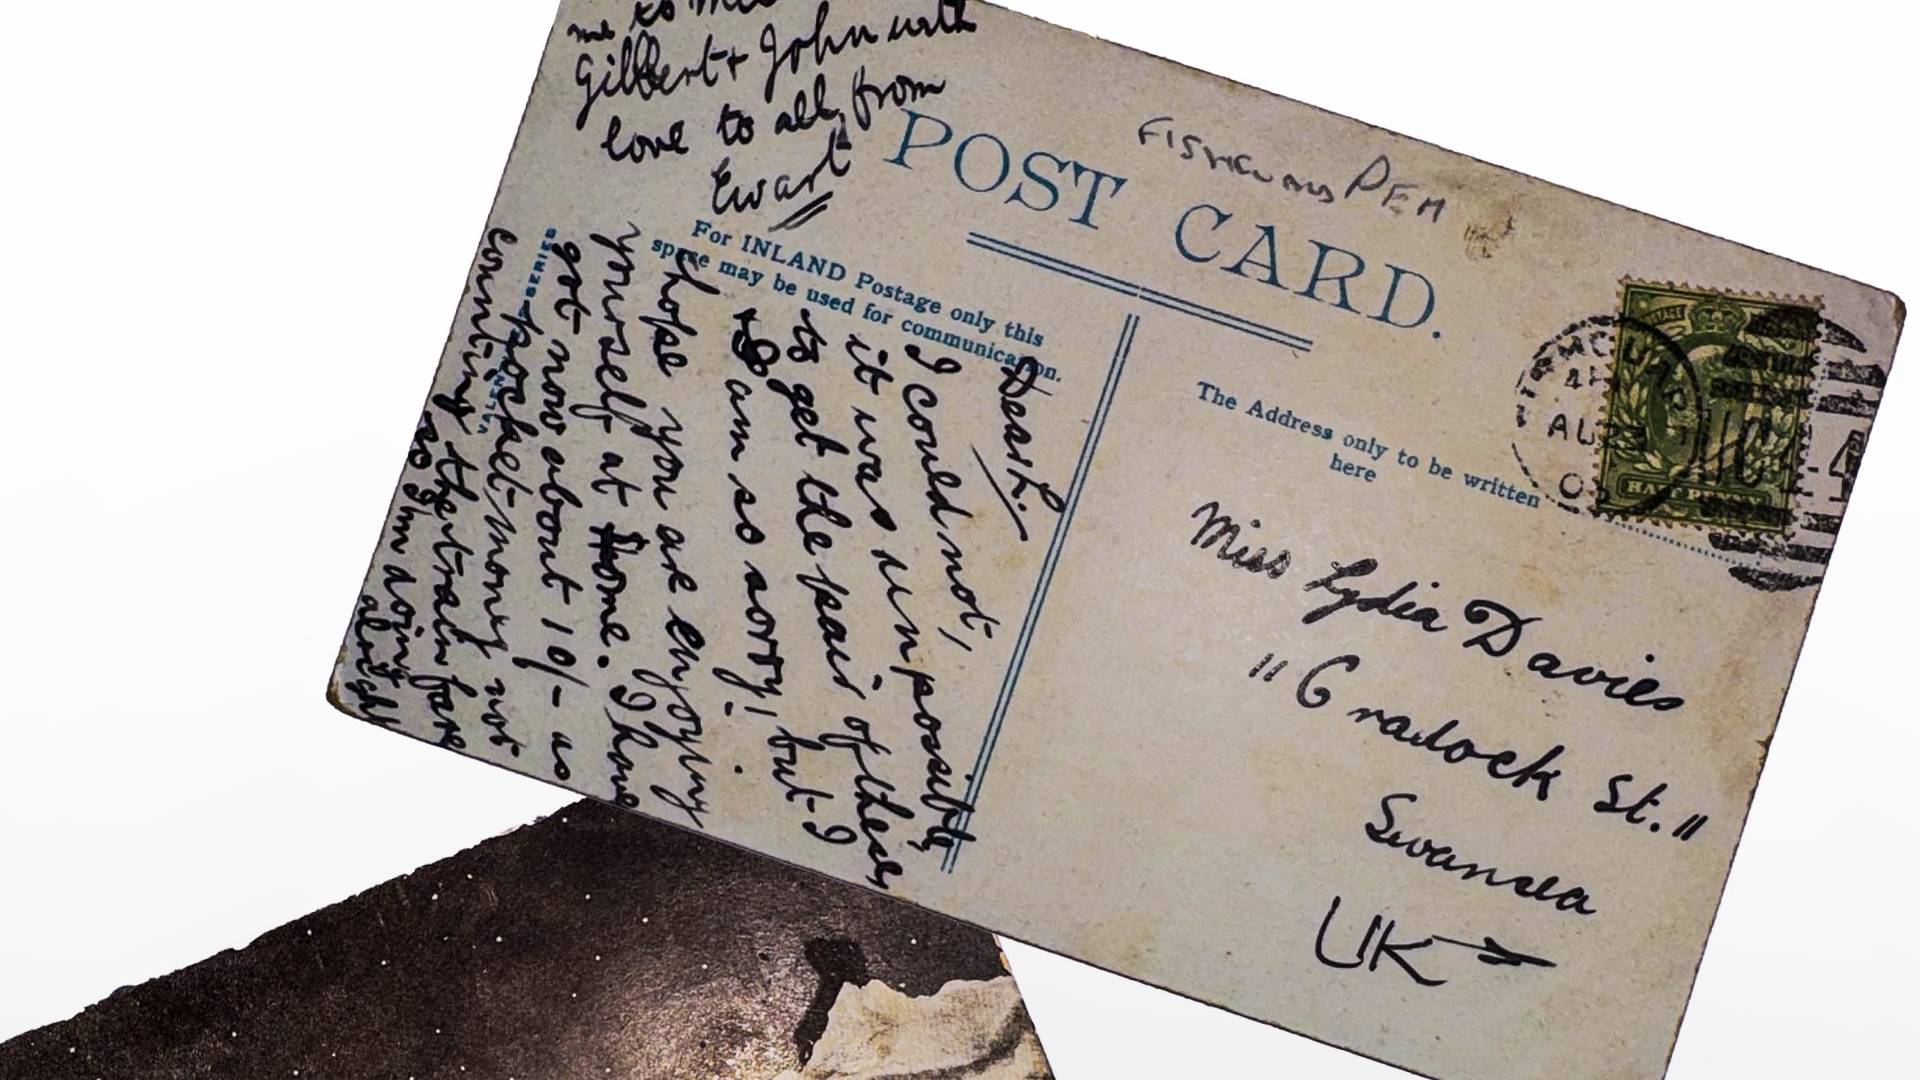 POST CARD.
FISHGUARD PEM
For INLAND Postage only this
space may be used for communication.
The Address only to be written
here
Dear L.
I could not,
it was impossible
to get the pair of these
I am so sorry! but I
hope you are enjoying
yourself at Home. I have
got now about 10/- as
pocket-money not
counting the train fare
so I'm doing
alright
me to
Gilbert + John with
love to all, from
Ewart
VALEN
SERIES
Miss Lydia Davies
"Cradock St."
Swansea
UK
POSTAGE
4
AU 23
0
HALF PENNY